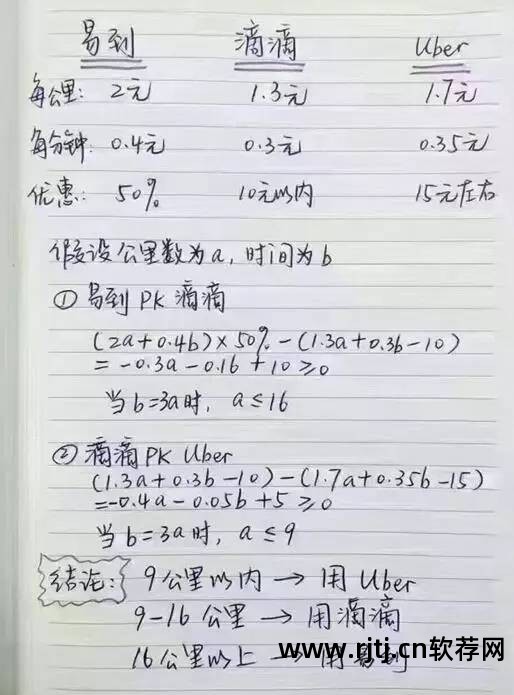 易到 滴滴 Uber
每公里: 2元 1.3元 1.7元
每分钟: 0.4元 0.3元 0.35元
优惠: 50% 10元以内 15元左右
假设公里数为a,时间为b
① 易到 PK 滴滴
(2a+0.4b)×50%-(1.3a+0.3b-10)
=-0.3a-0.1b+10≥0
当b=3a时, a≤16
② 滴滴 PK Uber
(1.3a+0.3b-10)-(1.7a+0.35b-15)
=-0.4a-0.05b+5≥0
当b=3a时, a≤9
结论: 9公里以内→用Uber
9-16公里→用滴滴
16公里以上→用易到
www.rjtj.cn软荐网